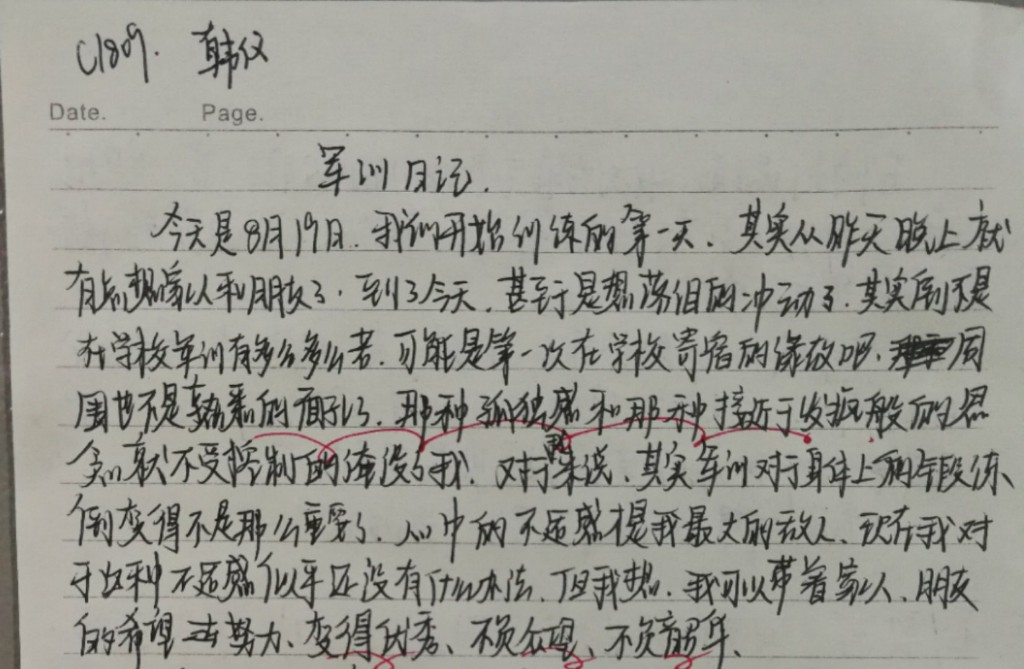 C1809. 韩仪
Date. Page.
军训日记.
今天是8月19日.我们开始训练的第一天.其实从昨天晚上就
有点想家人和朋友了.到了今天.甚至于是想落泪的冲动了.其实倒不是
在学校军训有多么多么苦.可能是第一次在学校寄宿的缘故吧.周
围也不是熟悉的面孔了.那种孤独感和那种接近于发疯般的思
念就不受控制的淹没了我.对于我来说.其实军训对于身体上的锻练、
倒变得不是那么重要了.心中的不适感才是我最大的敌人、现在我对
于这种不适感似乎还没有什么办法.但我想.我可以带着家人、朋友
的希望去努力、变得优秀、不负众望、不负韶华、